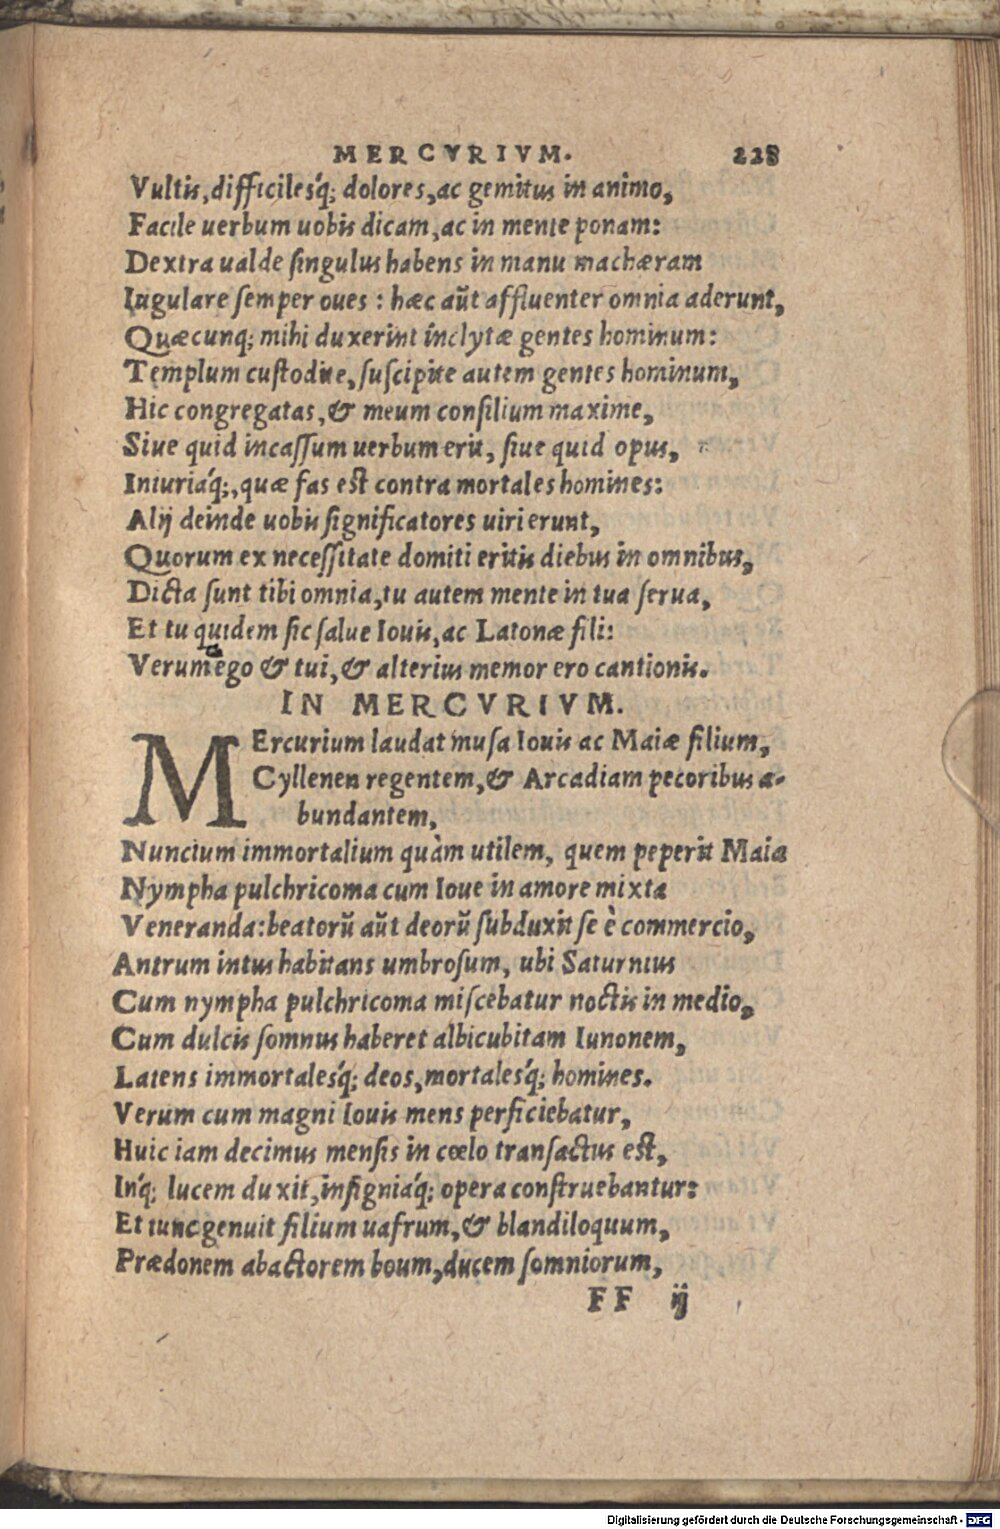 MERCVRIVM. 228
Vultis, difficilesq́; dolores, ac gemitus in animo,
Facile uerbum uobis dicam, ac in mente ponam:
Dextra ualde singulus habens in manu machæram
Iugulare semper oues : hæc aũt affluenter omnia aderunt,
Quæcunq; mihi duxerint inclytæ gentes hominum:
Templum custodite, suscipite autem gentes hominum,
Hic congregatas, & meum consilium maxime,
Siue quid incassum uerbum erit, siue quid opus,
Iniuriaq́;, quæ fas est contra mortales homines:
Alij deinde uobis significatores uiri erunt,
Quorum ex necessitate domiti eritis diebus in omnibus,
Dicta sunt tibi omnia, tu autem mente in tua serua,
Et tu quidem sic salue Iouis, ac Latonæ fili:
Verum ego & tui, & alterius memor ero cantionis.
IN MERCVRIVM.
MErcurium laudat musa Iouis ac Maiæ filium,
Cyllenen regentem, & Arcadiam pecoribus a-
bundantem,
Nuncium immortalium quàm utilem, quem peperit Maia
Nympha pulchricoma cum Ioue in amore mixta
Veneranda: beatorũ aũt deorũ subduxit se è commercio,
Antrum intus habitans umbrosum, ubi Saturnius
Cum nympha pulchricoma miscebatur noctis in medio,
Cum dulcis somnus haberet albicubitam Iunonem,
Latens immortalesq́; deos, mortalesq́; homines.
Verum cum magni Iouis mens perficiebatur,
Huic iam decimus mensis in cœlo transactus est,
Inq́; lucem duxit, insigniaq́; opera construebantur:
Et tunc genuit filium uafrum, & blandiloquum,
Prædonem abactorem boum, ducem somniorum,
FF ij
Digitalisierung gefördert durch die Deutsche Forschungsgemeinschaft - DFG